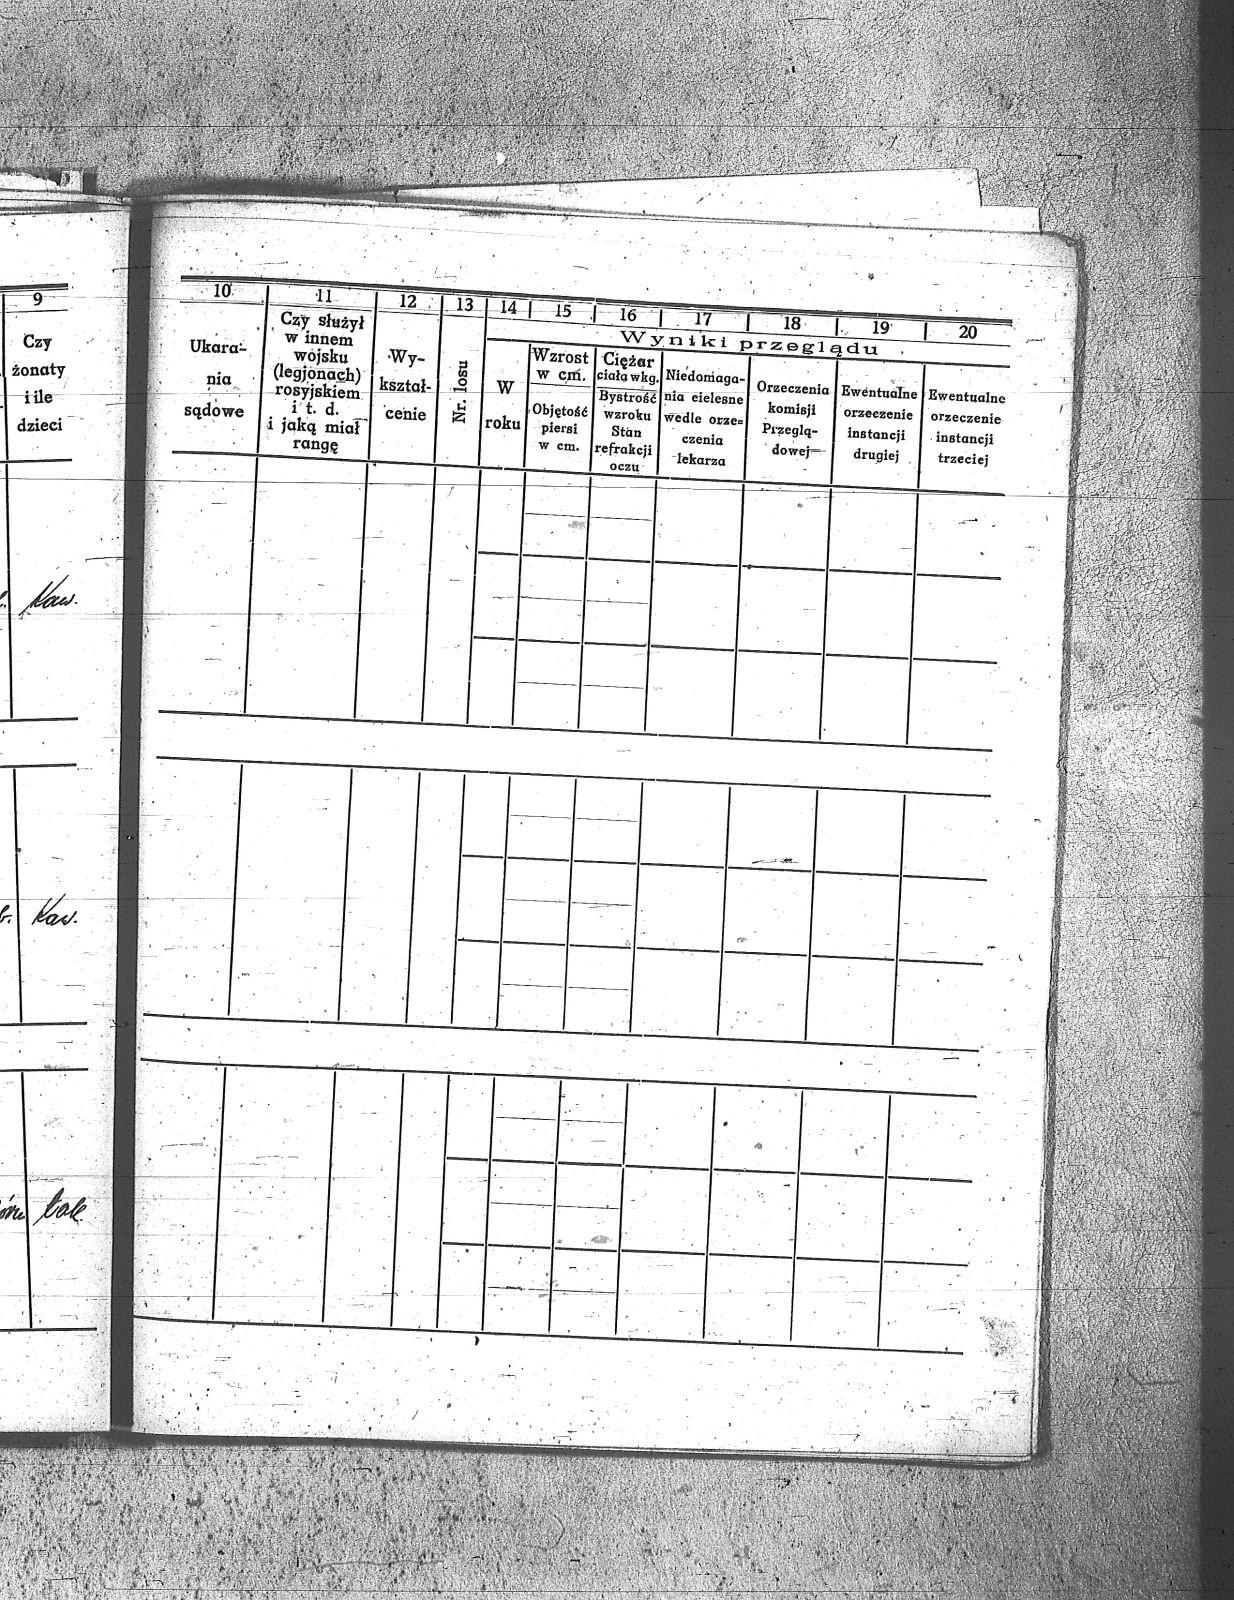 9
Czy
żonaty
i ile
dzieci
Kaw.
Kaw.
10
Ukara-
nia
sądowe
11
Czy służył
w innem
wojsku
(legjonach)
rosyjskiem
i t. d.
i jaką miał
rangę
12
Wy-
kształ-
cenie
13
Nr. losu
14
W
roku
Wyniki przeglądu
15
Wzrost
w cm.
Objętość
piersi
w cm.
16
Ciężar
ciała w kg.
Bystrość
wzroku
Stan
refrakcji
oczu
17
Niedomaga-
nia cielesne
wedle orze=
czenia
lekarza
18
Orzeczenia
komisji
Przeglą-
dowej
19
Ewentualne
orzeczenie
instancji
drugiej
20
Ewentualne
orzeczenie
instancji
trzeciej